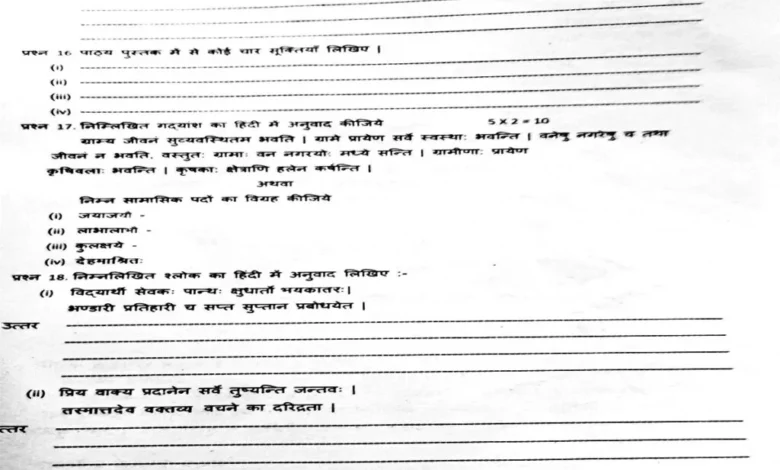 प्रश्न 16 पाठ्य पुस्तक में से कोई चार सूक्तियाँ लिखिए |
(i)
(ii)
(iii)
(iv)
प्रश्न 17. निम्लिखित गद्यांश का हिंदी में अनुवाद कीजिये 5 X 2 = 10
ग्राम्य जीवनं सुव्यवस्थितम भवति | ग्रामे प्रायेण सर्वे स्वस्थाः भवन्ति | वनेषु नगरेषु च तथा
जीवनं न भवति, वस्तुतः ग्रामाः वन नगरयोः मध्ये सन्ति | ग्रामीणाः प्रायेण
कृषिवलाः भवन्ति | कृषकाः क्षेत्राणि हलेन कर्षन्ति |
अथवा
निम्न सामासिक पदों का विग्रह कीजिये
(i) जयाजयौ -
(ii) लाभालाभौ -
(iii) कुलक्षये -
(iv) देहमाश्रितः
प्रश्न 18. निम्नलिखित श्लोक का हिंदी में अनुवाद लिखिए :-
(i) विद्यार्थी सेवकः पान्थः क्षुधार्तो भयकातरः|
भण्डारी प्रतिहारी च सप्त सुप्तान प्रबोधयेत |
उत्तर
(ii) प्रिय वाक्य प्रदानेन सर्वे तुष्यन्ति जन्तवः |
तस्मात्तदेव वक्तव्य वचने का दरिद्रता |
त्तर